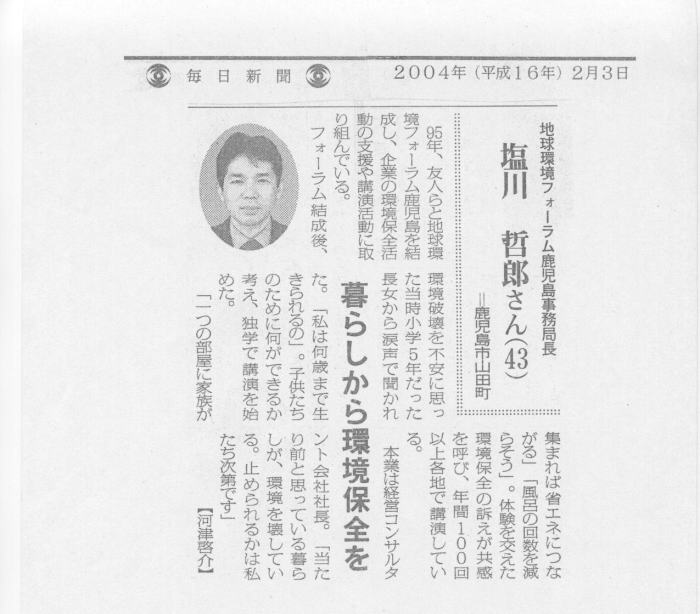 毎日新聞
2004年（平成16年）2月3日
地球環境フォーラム鹿児島事務局長
塩川　哲郎さん（43）
＝鹿児島市山田町
暮らしから環境保全を
95年、友人らと地球環
境フォーラム鹿児島を結
成し、企業の環境保全活
動の支援や講演活動に取
り組んでいる。
フォーラム結成後、
環境破壊を不安に思っ
た当時小学5年だった
長女から涙声で聞かれ
た。「私は何歳まで生
きられるの」。子供たち
のために何ができるか
考え、独学で講演を始
めた。
「一つの部屋に家族が
集まれば省エネにつな
がる」「風呂の回数を減
らそう」。体験を交えた
環境保全の訴えが共感
を呼び、年間100回
以上各地で講演してい
る。
本業は経営コンサルタ
ント会社社長。「当た
り前と思っている暮ら
しが、環境を壊してい
る。止められるかは私
たち次第です」
【河津啓介】